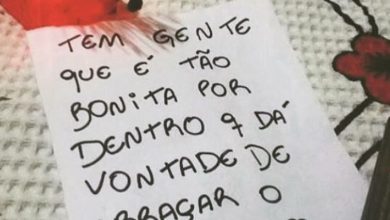 TEM GENTE
QUE É TÃO
BONITA POR
DENTRO q DÁ
VONTADE DE
ABRAÇAR O